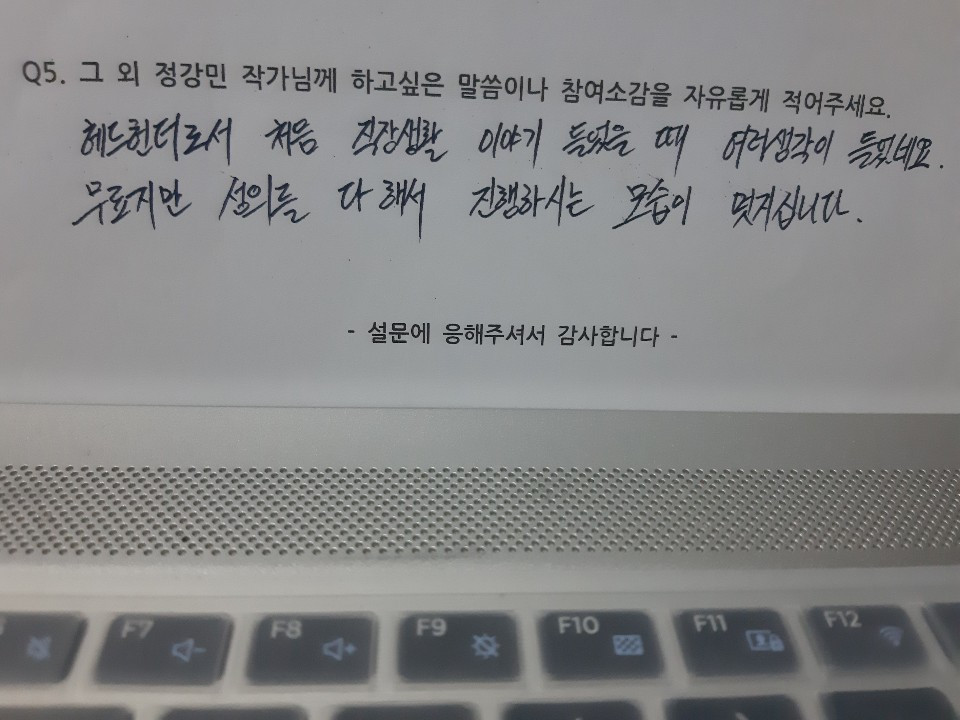 Q5. 그 외 정강민 작가님께 하고싶은 말씀이나 참여소감을 자유롭게 적어주세요.
헤드헌터로서 처음 직장생활 이야기 들었을 때 여러생각이 들었네요.
무료지만 성의를 다해서 진행하시는 모습이 멋지십니다.
- 설문에 응해주셔서 감사합니다 -
F7 F8 F9 F10 F11 F12